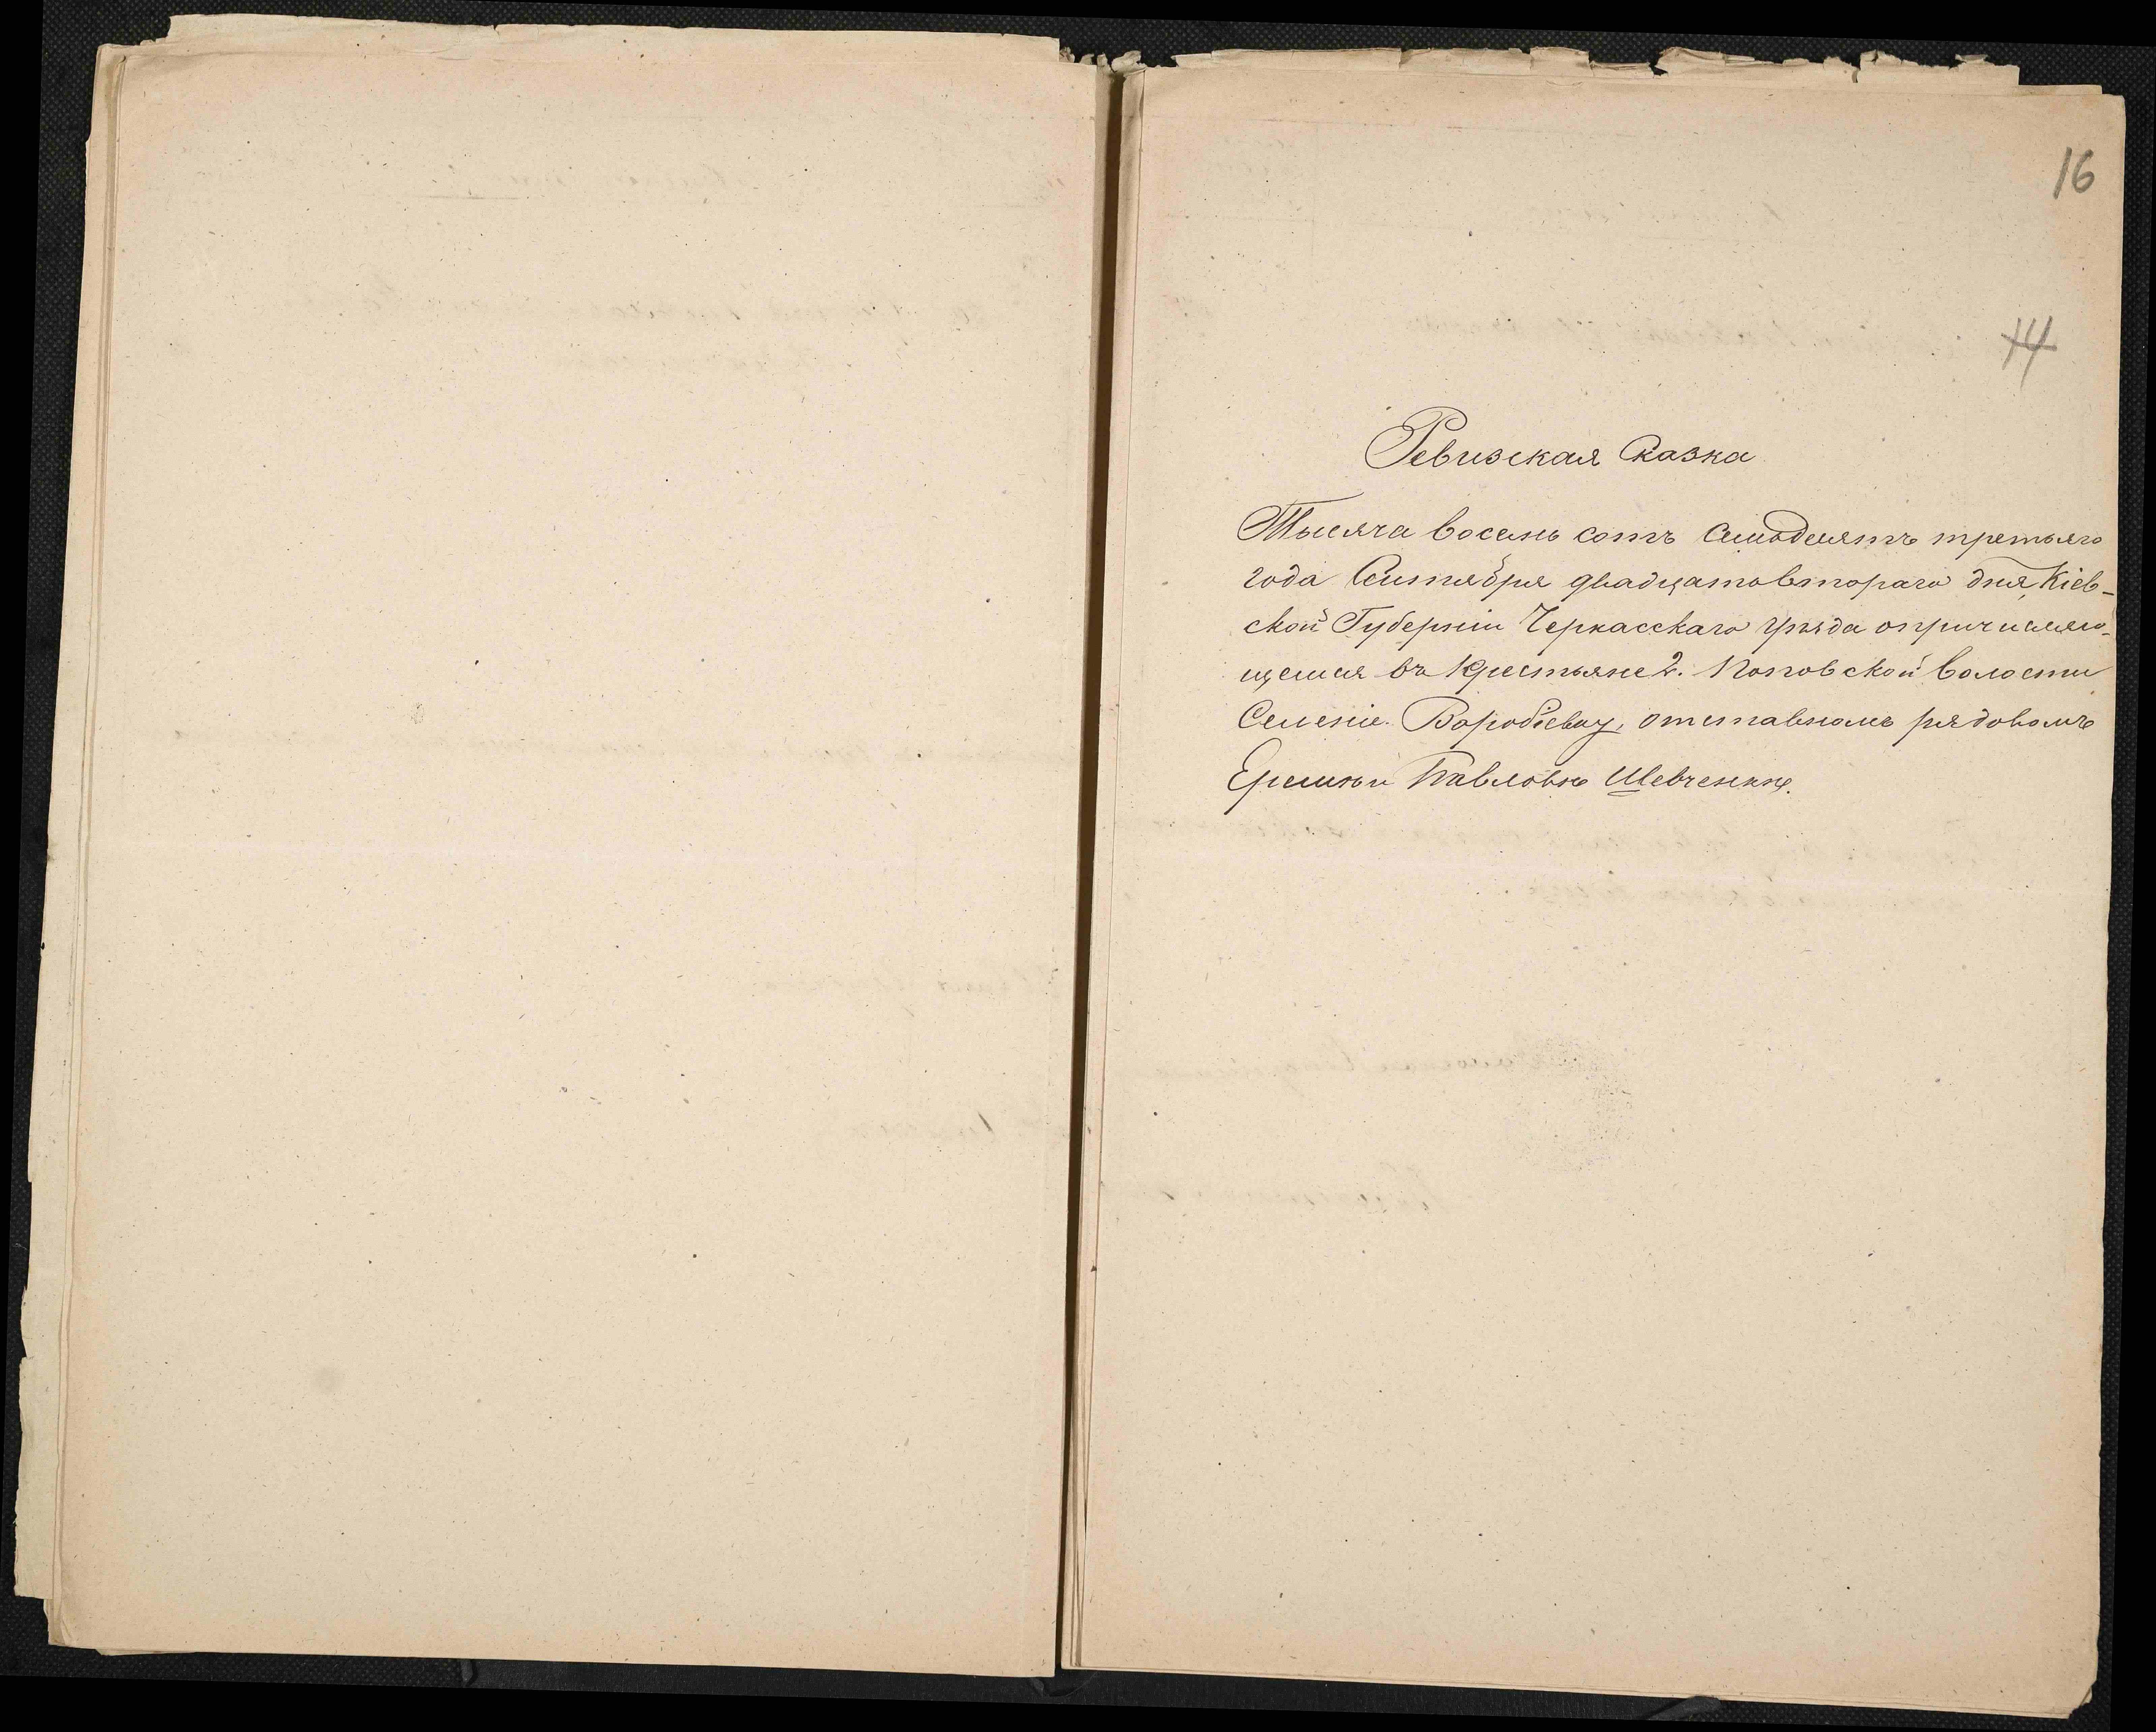 16
14
Ревизская Сказка
Тысяча восемь сотъ семьдесятъ третьяго
года Сентября двадцатовтораго дня, Кіев-
ской Губерніи Черкасскаго уѣзда о причисляю-
щемся въ крестьяне Поповской волости
Селеніе Воробіевку, отставномъ рядовомъ
Павловѣ Шевченкѣ.